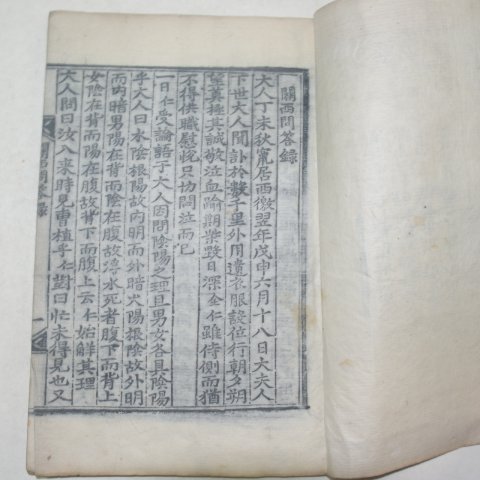 關西問答錄
大人丁未秋竄居西徼翌年戊申六月十八日大夫人
下世大人聞訃於數千里外用遺衣服設位行朝夕朔
望奠極其誠敬泣血踰期柴毀日深全仁雖侍側而猶
不得供職慰悅只切悶泣而已
一日仁受論語于大人因問陰陽之理且男女各具陰陽
乎大人曰水陰根陽故內明而外暗火陽根陰故外明
而內暗男陽在背而陰在腹故溺水死者腹下而背上
女陰在背而陽在腹故背下而腹上云仁始解其理
大人問曰汝入來時見曺植乎仁對曰忙未得見也又
關西問答錄
一